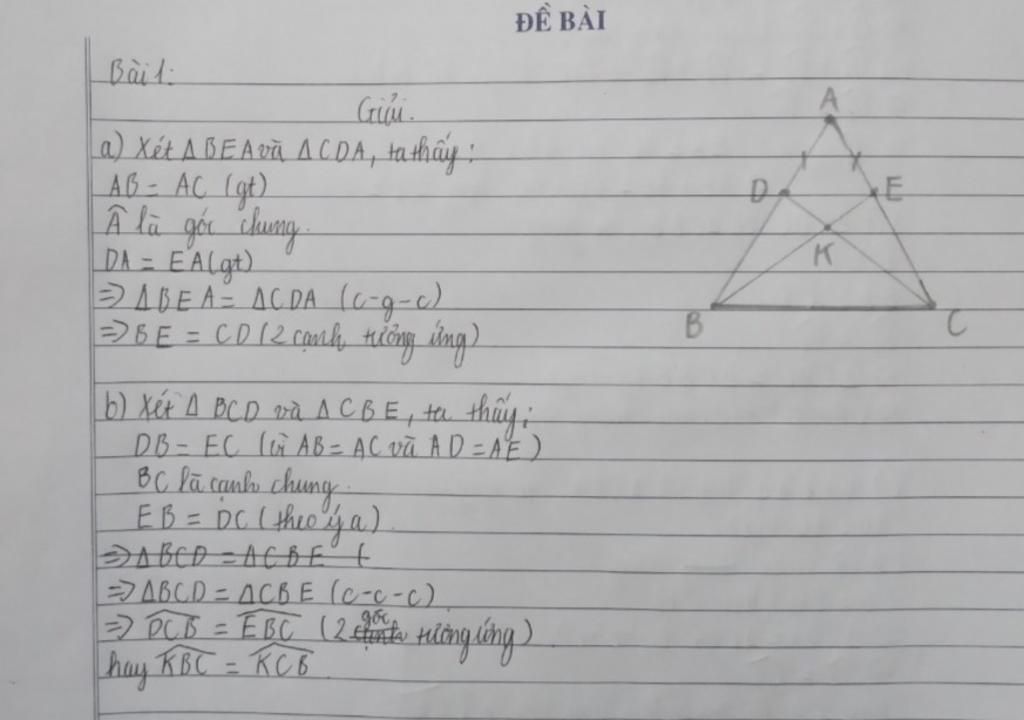 ĐỀ BÀI
Bài 1:
Giải.
a) Xét Δ BEA và Δ CDA, ta thấy:
AB = AC (gt)
Â là góc chung.
DA = EA (gt)
=> Δ BEA = Δ CDA (c-g-c)
=> BE = CD (2 cạnh tương ứng)
b) Xét Δ BCD và Δ CBE, ta thấy:
DB = EC (vì AB = AC và AD = AE)
BC là cạnh chung.
EB = DC (theo ý a)
=> Δ BCD = Δ CBE (
=> ΔBCD = ΔCBE (c-c-c)
=> DCB = EBC (2 góc tương ứng)
hay KBC = KCB
A
D
E
K
B
C